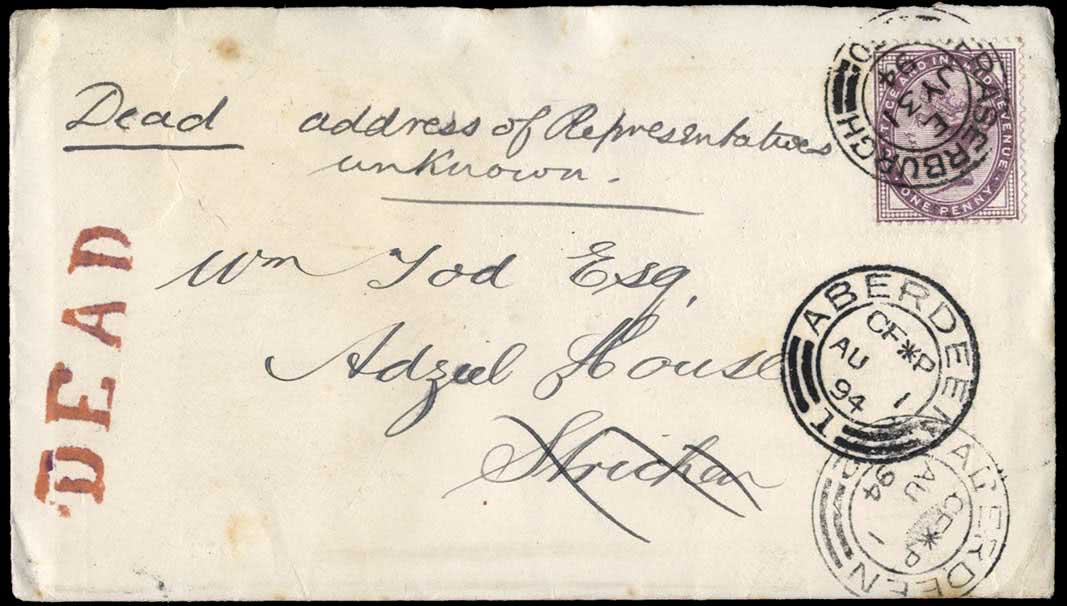 Dead address of Representatives
unknown.
Wm Tod Esq,
Adziel House
Strichen
DEAD
FRASERBURGH
E
JY 31
94
POSTAGE AND INLAND REVENUE
ONE PENNY
ABERDEEN
CF*P
AU 1
94
1
ABERDEEN
CF*P
AU 1
94